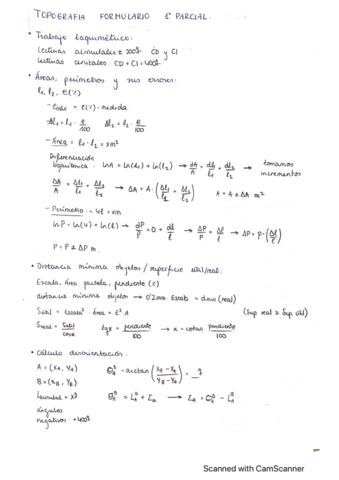 TOPOGRAFIA FORMULARIO 1º PARCIAL.
• Trabajo taquimétrico:
Lecturas acimutales ± 200g CD y CI
Lecturas cenitales: CD + CI = 400g
• Áreas, perímetros y sus errores:
l1, l2, e(%)
= e(%) · medida
Δl1 = l1 · e/100 Δl2 = l2 · e/100
- Área = l1 · l2 = xm²
Diferenciación
logarítmica: lnA = ln(l1) + ln(l2) → dA/A = dl1/l1 + dl2/l2 → tomamos incrementos
ΔA/A = Δl1/l1 + Δl2/l2 → ΔA = A · (Δl1/l1 + Δl2/l2) A = A ± ΔA m²
- Perímetro = 4l = xm
lnP = ln(4) + ln(l) → dP/P = 0 + dl/l → ΔP/P = Δl/l → ΔP = P · (Δl/l)
P = P ± ΔP m
• Distancia mínima objetos / superficie útil/real:
Escala, Área parcela, pendiente (%)
distancia mínima objetos → 0'2mm · Escala = dmin (real)
Sútil = Escala² · Área = E² · A (Sup real > Sup útil)
Sreal = Sútil/cosα tgα = pendiente/100 → α = cotan pendiente/100
• Cálculo desorientación:
A = (XA, YA)
B = (XB, YB)
Lacimutal = Xg
ángulos
negativos: +400g
Scanned with CamScanner